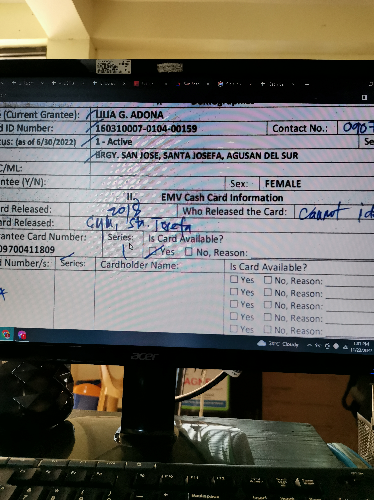 (Current Grantee): LILIA G. ADONA
ID Number: 160310007-0104-00159 Contact No.: 0907
tus: (as of 6/30/2022) 1 - Active Se
BRGY. SAN JOSE, SANTA JOSEFA, AGUSAN DEL SUR
C/ML:
ntee (Y/N): Sex: FEMALE
II. EMV Cash Card Information
rd Released: 2018 Who Released the Card: cannot
rd Released: Gym, Sta. Josefa
rantee Card Number: Series: Is Card Available?
09700411809 1 Yes No, Reason:
d Number/s: Series: Cardholder Name: Is Card Available?
Yes No, Reason:
Yes No, Reason:
Yes No, Reason:
Yes No, Reason:
Yes No, Reason:
Cloudy
acer